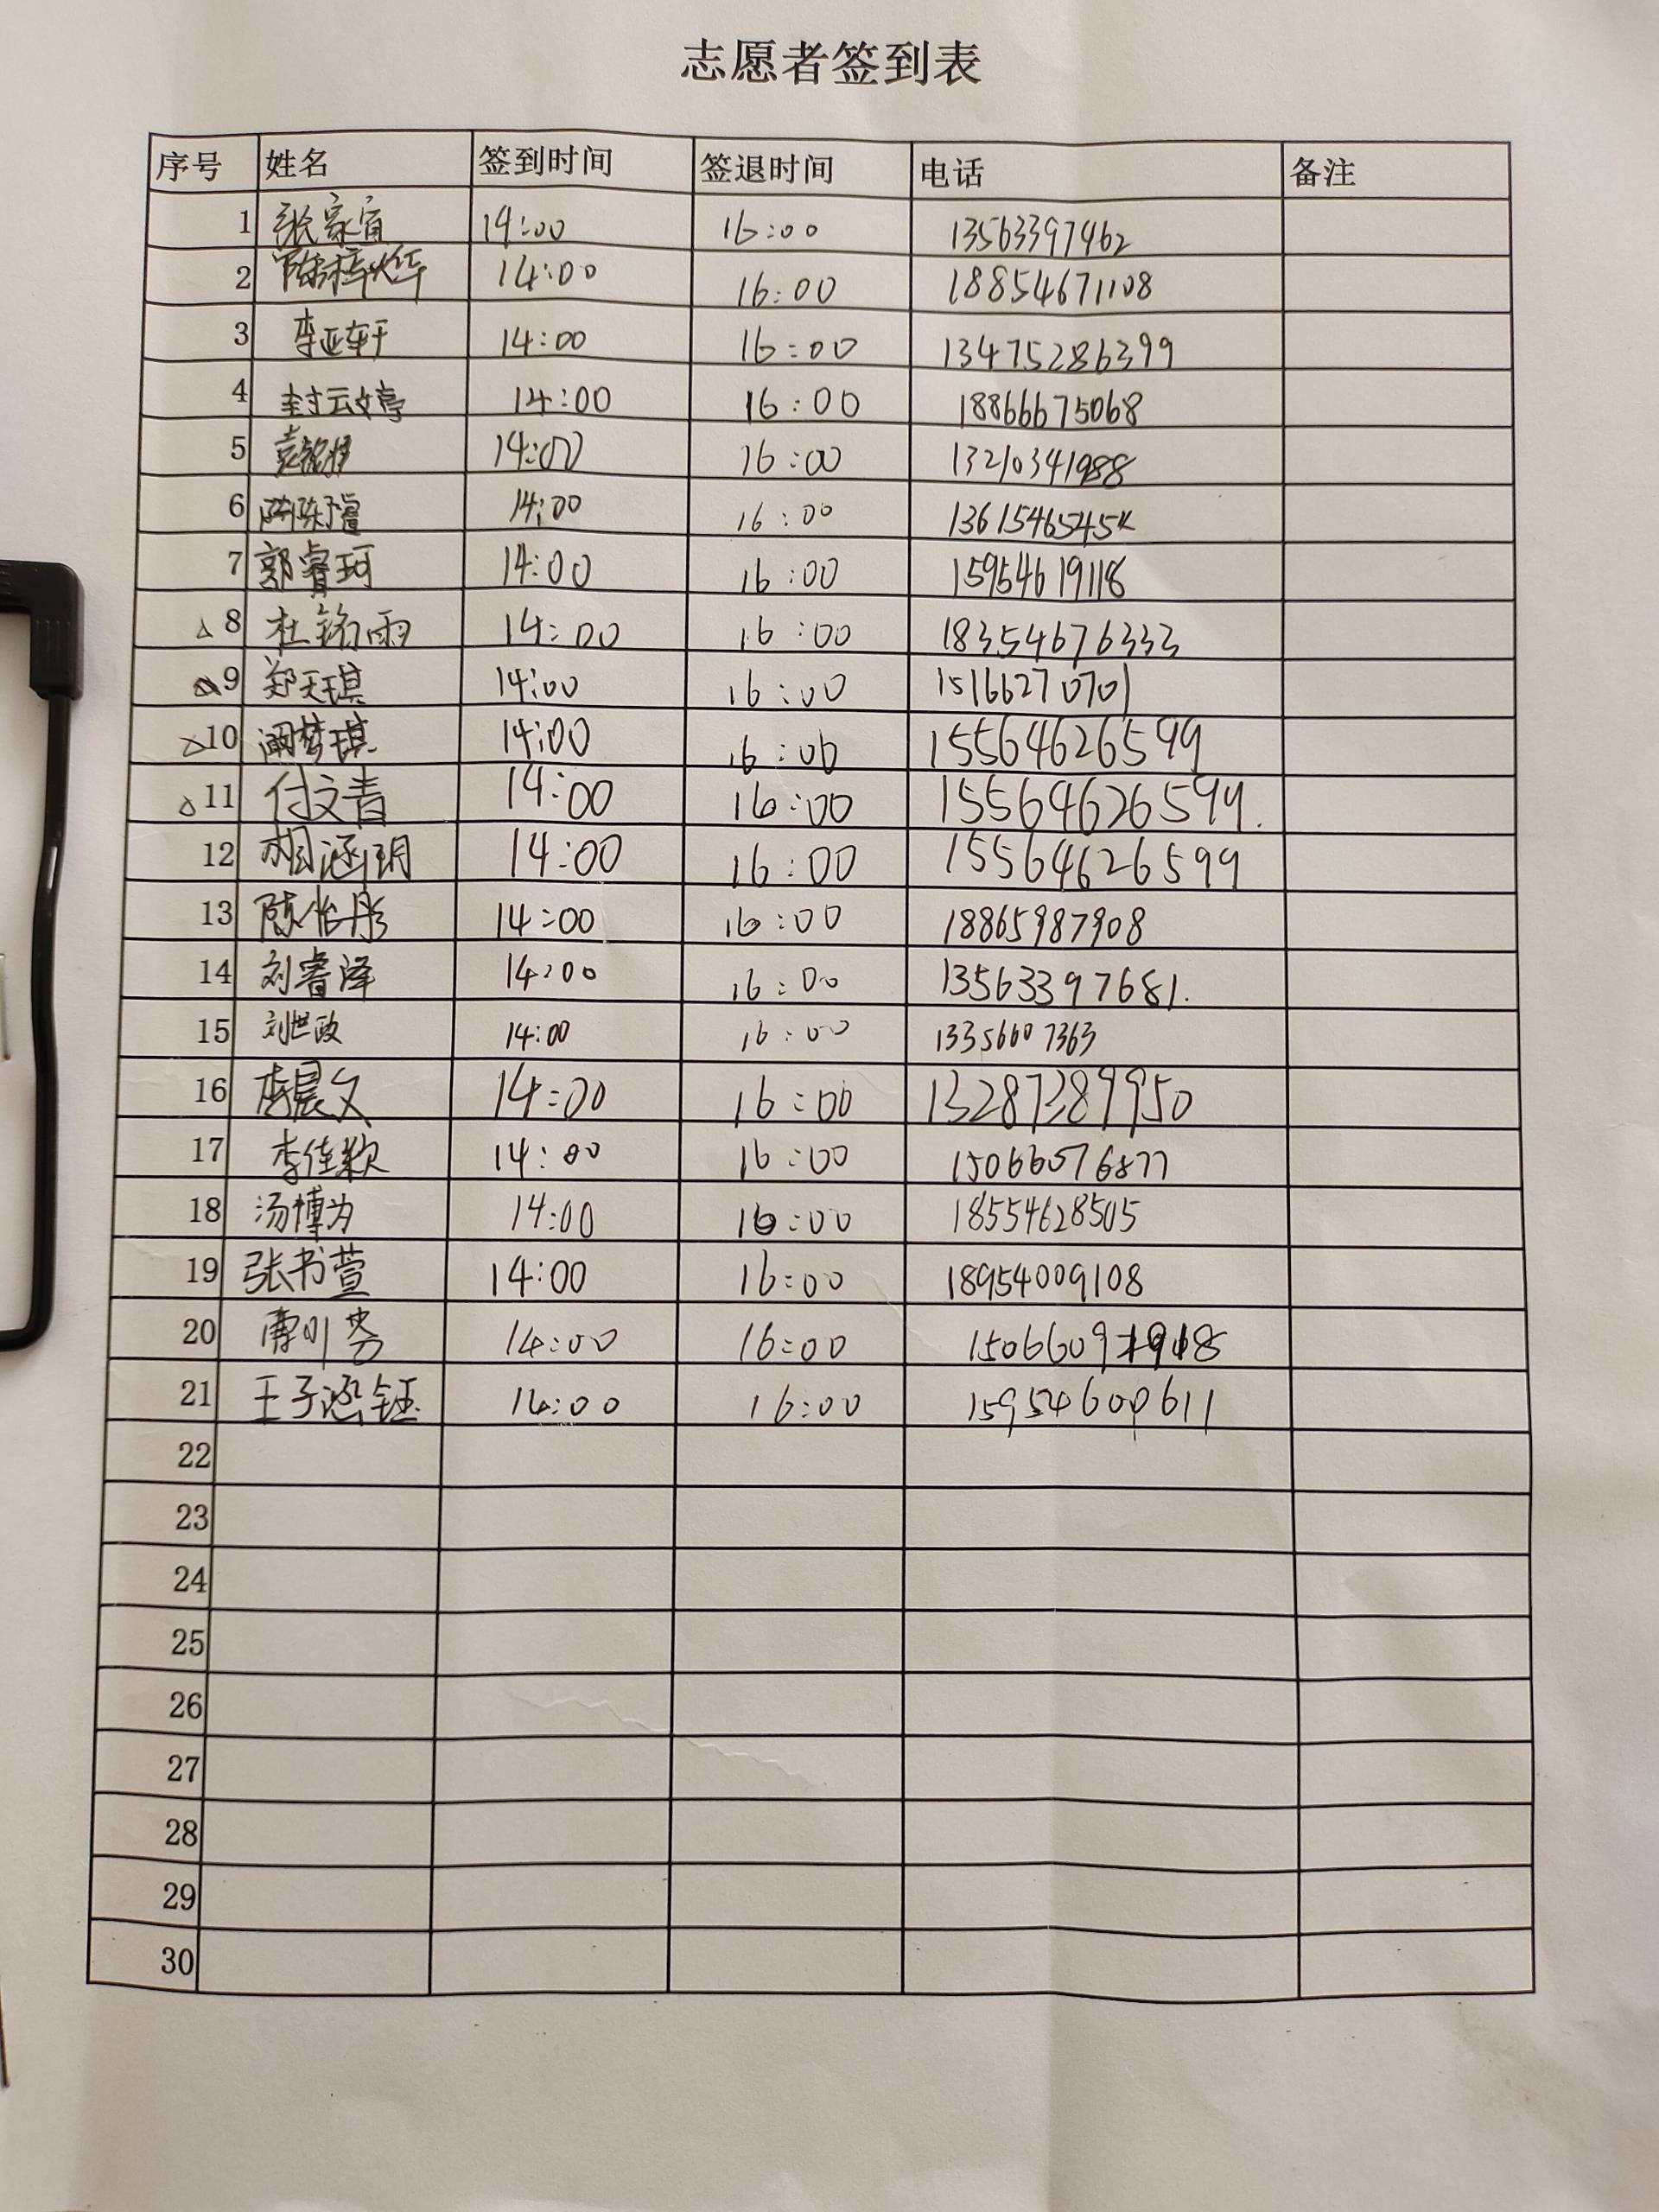 志愿者签到表
序号 姓名 签到时间 签退时间 电话 备注
1 张家宜 14:00 16:00 13563397462
2 陈梓烨 14:00 16:00 18854671108
3 李亚轩 14:00 16:00 13475286399
4 封云婷 14:00 16:00 18866675068
5 14:00 16:00 13210341988
6 14:00 16:00
7 郭睿珂 14:00 16:00 15954619118
△ 8 杜铭雨 14:00 16:00 18354676333
9 郑天琪 14:00 16:00 15166270701
△ 10 阚梦琪 14:00 16:00 15564626599
△ 11 付文青 14:00 16:00 15564626599.
12 相涵玥 14:00 16:00 15564626599
13 陈怡彤 14:00 16:00 18865987908
14 刘睿泽 14:00 16:00 13563397681.
15 刘世政 14:00 16:00 13356607363
16 李晨文 14:00 16:00 13287389950
17 李佳颖 14:00 16:00 15066076877
18 汤博为 14:00 16:00 18554628505
19 张书萱 14:00 16:00 18954009108
20 14:00 16:00
21 王子涵钰 14:00 16:00 15954600611
22
23
24
25
26
27
28
29
30